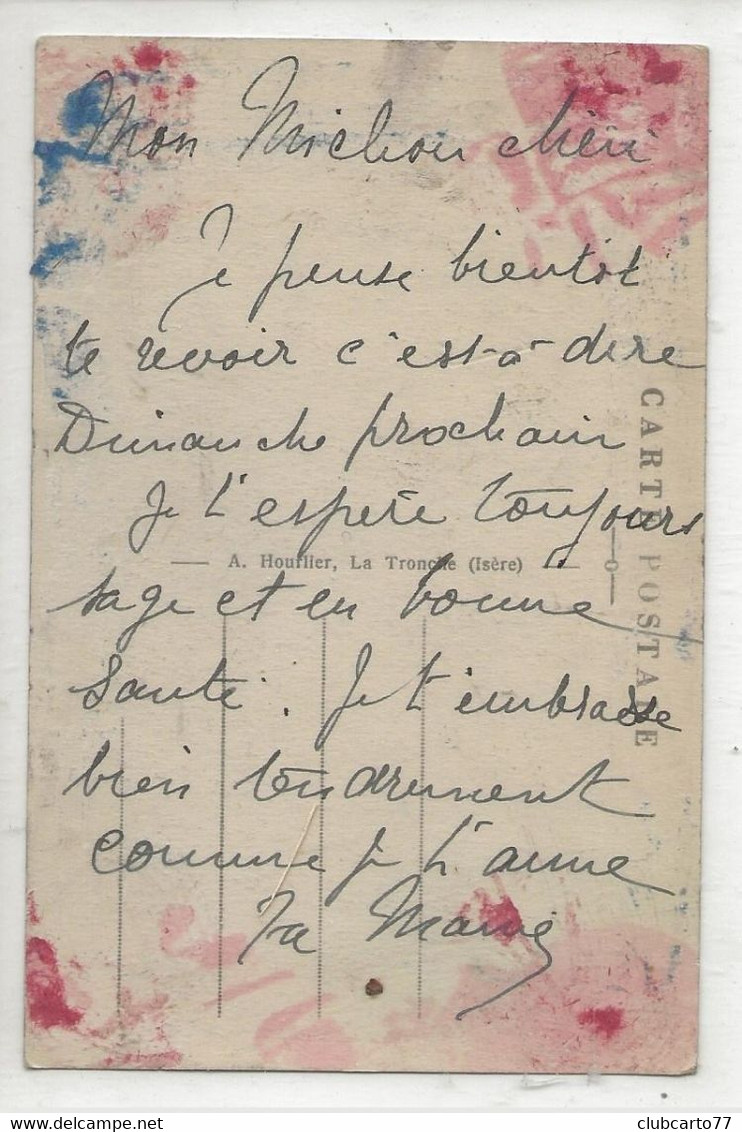 Mon Michou chéri
Je pense bientôt
te revoir c'est-à-dire
Dimanche prochain
Je t'espère toujours
sage et en bonne
santé. Je t'embrasse
bien tendrement
comme je t'aime
Ta Mamé
A. Houflier, La Tronche (Isère)
CARTE POSTALE
clubcarto77